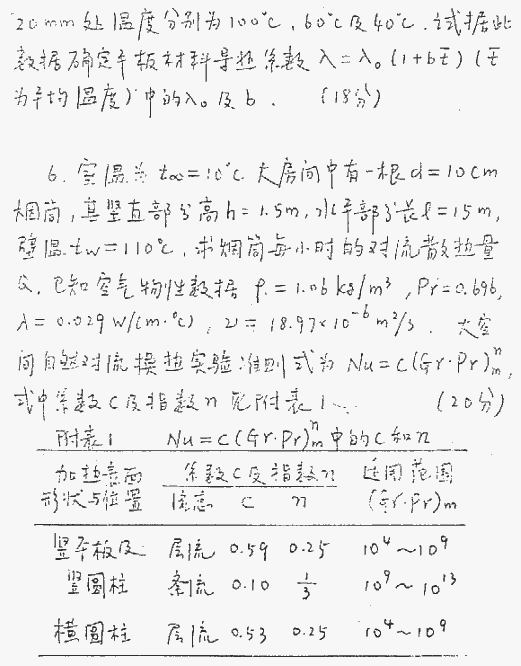 20mm处温度分别为100℃、60℃及40℃.试据此
数据确定平板材料导热系数λ=λ₀(1+bt̄)(t̄
为平均温度)中的λ₀及b. (18分)
6.室温为t∞=10℃大房间中有一根d=10cm
烟筒,其竖直部分高h=1.5m,水平部分长l=15m,
壁温tw=110℃,求烟筒每小时的对流散热量
Q.已知空气物性数据ρ=1.06kg/m³,Pr=0.696,
λ=0.029W/(m·℃),ν=18.97×10⁻⁶m²/s. 大空
间自然对流换热实验准则式为Nu=C(Gr·Pr)ₘⁿ,
式中系数C及指数n见附表1. (20分)
附表1 Nu=C(Gr·Pr)ₘⁿ中的C和n
加热表面 系数C及指数n 适用范围
形状与位置 流态 C n (Gr·Pr)m
竖平板及 层流 0.59 0.25 10⁴~10⁹
竖圆柱 紊流 0.10 1/3 10⁹~10¹³
横圆柱 层流 0.53 0.25 10⁴~10⁹